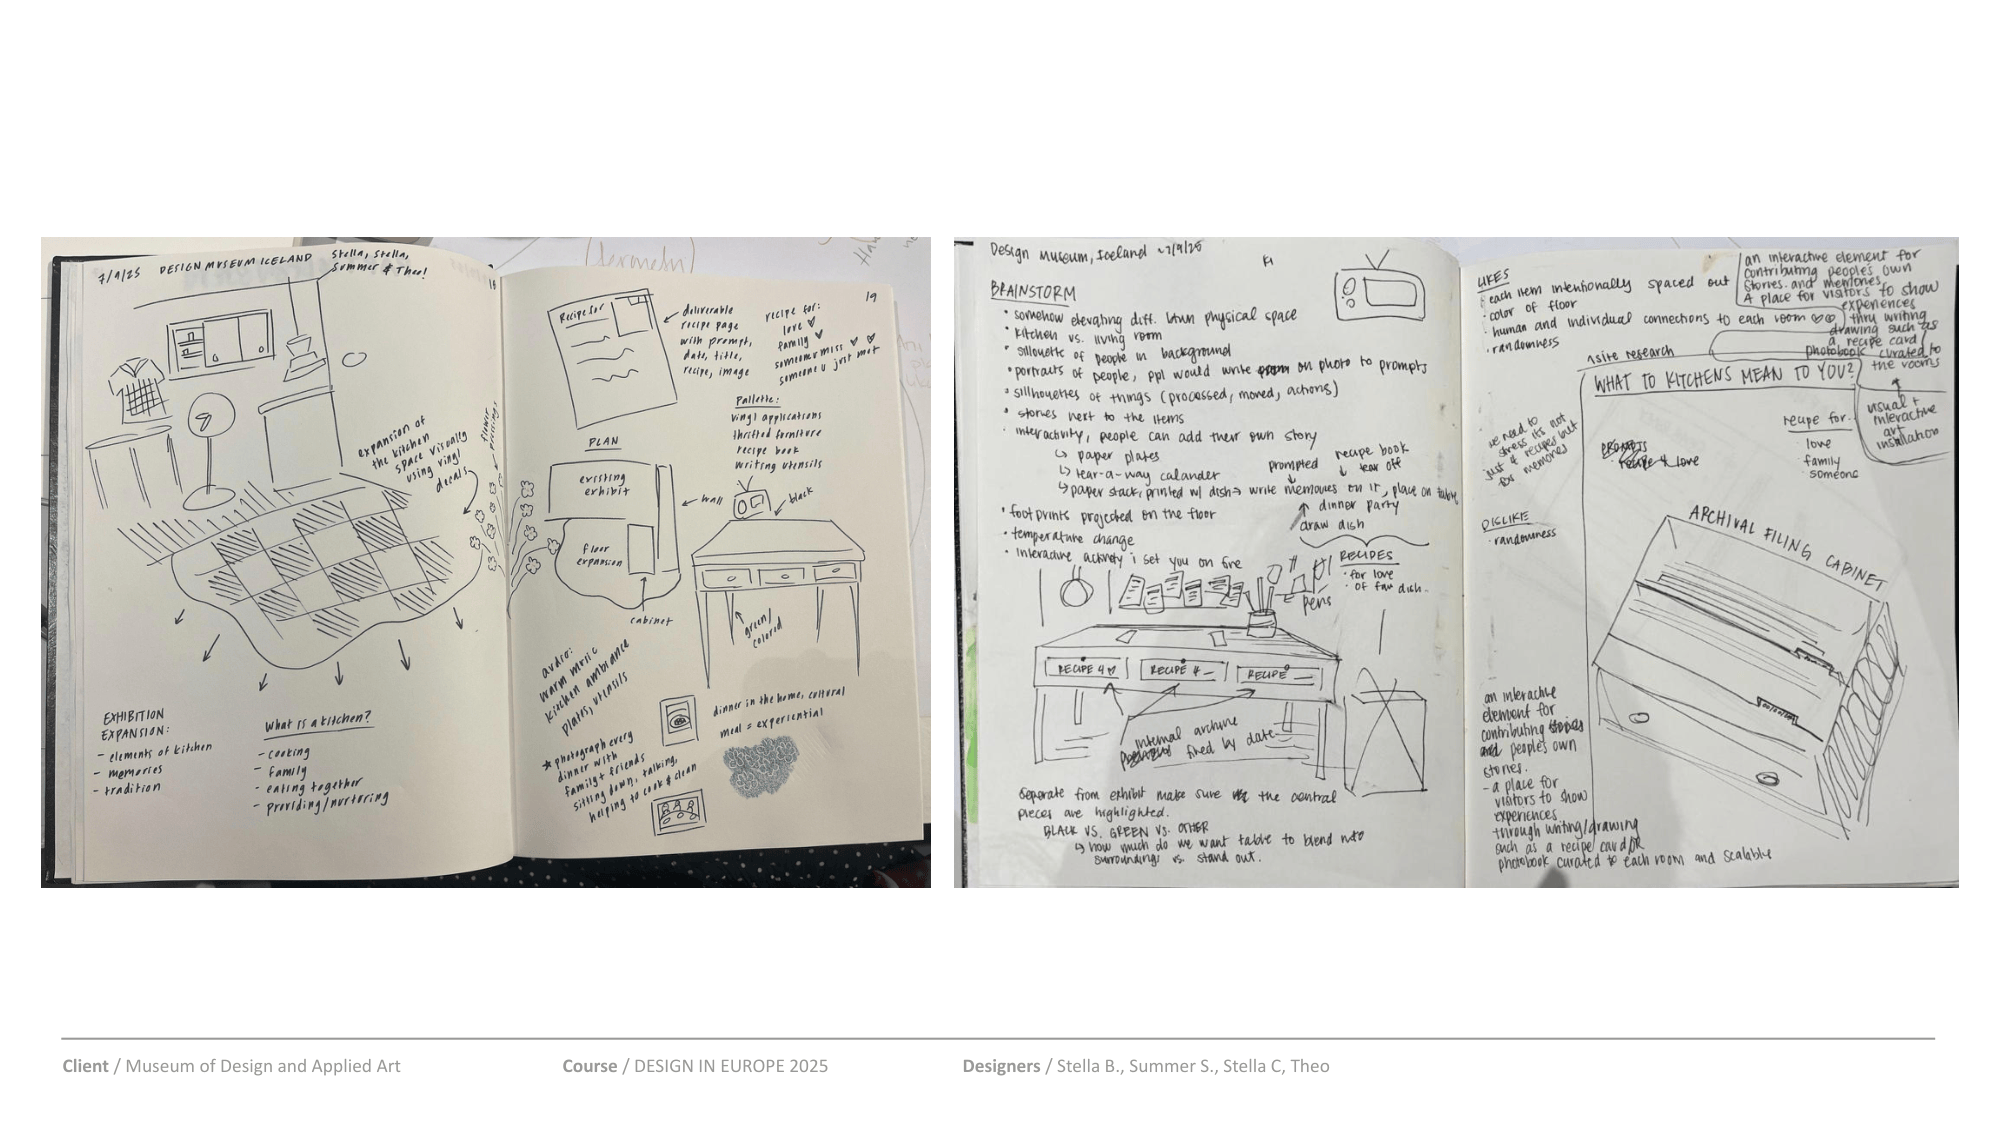 7/9/25 DESIGN MUSEUM ICELAND
Stella, Stella,
Summer & Theo!
18
expansion of
the kitchen
space visually
using vinyl
decals
flower
pressings
EXHIBITION
EXPANSION:
- elements of kitchen
- memories
- tradition
What is a kitchen?
- cooking
- family
- eating together
- providing/nurturing
19
Recipe for
deliverable
recipe page
with prompt,
date, title,
recipe, image
recipe for:
love
family
someone u miss
someone u just met
Pallette:
vinyl applications
thrifted furniture
recipe book
writing utensils
PLAN
existing
exhibit
wall
floor
expansion
cabinet
black
green/
colored
audio:
warm music
kitchen ambiance
plates, utensils
dinner in the home, cultural
meal = experiential
photograph every
dinner with
family + friends
sitting down, talking,
helping to cook & clean
Design Museum, Iceland ~7/9/25
BRAINSTORM
• somehow elevating diff. btwn physical space
• kitchen vs. living room
• sillouette of people in background
• portraits of people, ppl would write on photo to prompts
• sillhouettes of things (processed, moved, actions)
• stories next to the items
· interactivity, people can add their own story
↳ paper plates
↳ tear-a-way calander
↳ paper stack, printed w/ dish → write memories on it, place on table
prompted
recipe book
↓ tear off
dinner party
draw dish
• footprints projected on the floor
• temperature change
• interactive activity i set you on fire
RECIPES
· for love
· of fav dish.
pens
RECIPE 4
RECIPE 4 _
RECIPE _
internal archive
fired by date
Separate from exhibit make sure the central
pieces are highlighted.
BLACK VS. GREEN VS. OTHER
↳ how much do we want table to blend into
surroundings vs. stand out.
LIKES
· each item intentionally spaced out
· color of floor
· human and individual connections to each room
· randomness
an interactive element for
contributing peoples own
stories and memories
A place for visitors to show
experiences
thru writing
drawing such as
a recipe card/
photobook curated to
the rooms
visual +
interactive
art
installation
nsite research
WHAT TO KITCHENS MEAN TO YOU?
we need to
stress its not
just 4 recipes but
for memories
recipe for:
love
family
someone
recipe 4 love
DISLIKE
· randomness
ARCHIVAL FILING CABINET
an interactive
element for
contributing
peoples own
stories.
- a place for
visitors to show
experiences
through writing/drawing
such as a recipe card/OR
photobook curated to each room and scalable
Client / Museum of Design and Applied Art
Course / DESIGN IN EUROPE 2025
Designers / Stella B., Summer S., Stella C, Theo